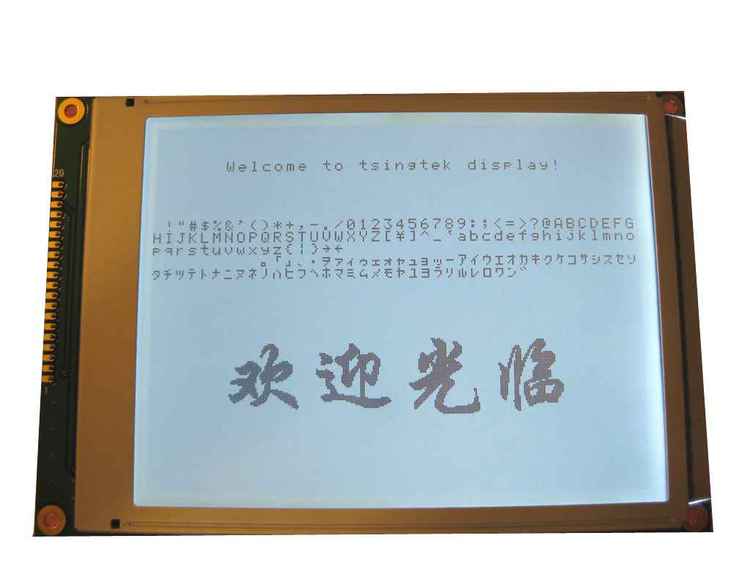 20
Welcome to tsingtek display!
!"#$%&'()*+,-./0123456789:;<=>?@ABCDEFG
HIJKLMNOPQRSTUVWXYZ[¥]^_`abcdefghijklmno
pqrstuvwxyz{|}→←
。「」、・ヲァィゥェォャュョッーアイウエオカキクケコサシスセソ
タチツテトナニヌネノハヒフヘホマミムメモヤユヨラリルレロワン゛
欢迎光临
1